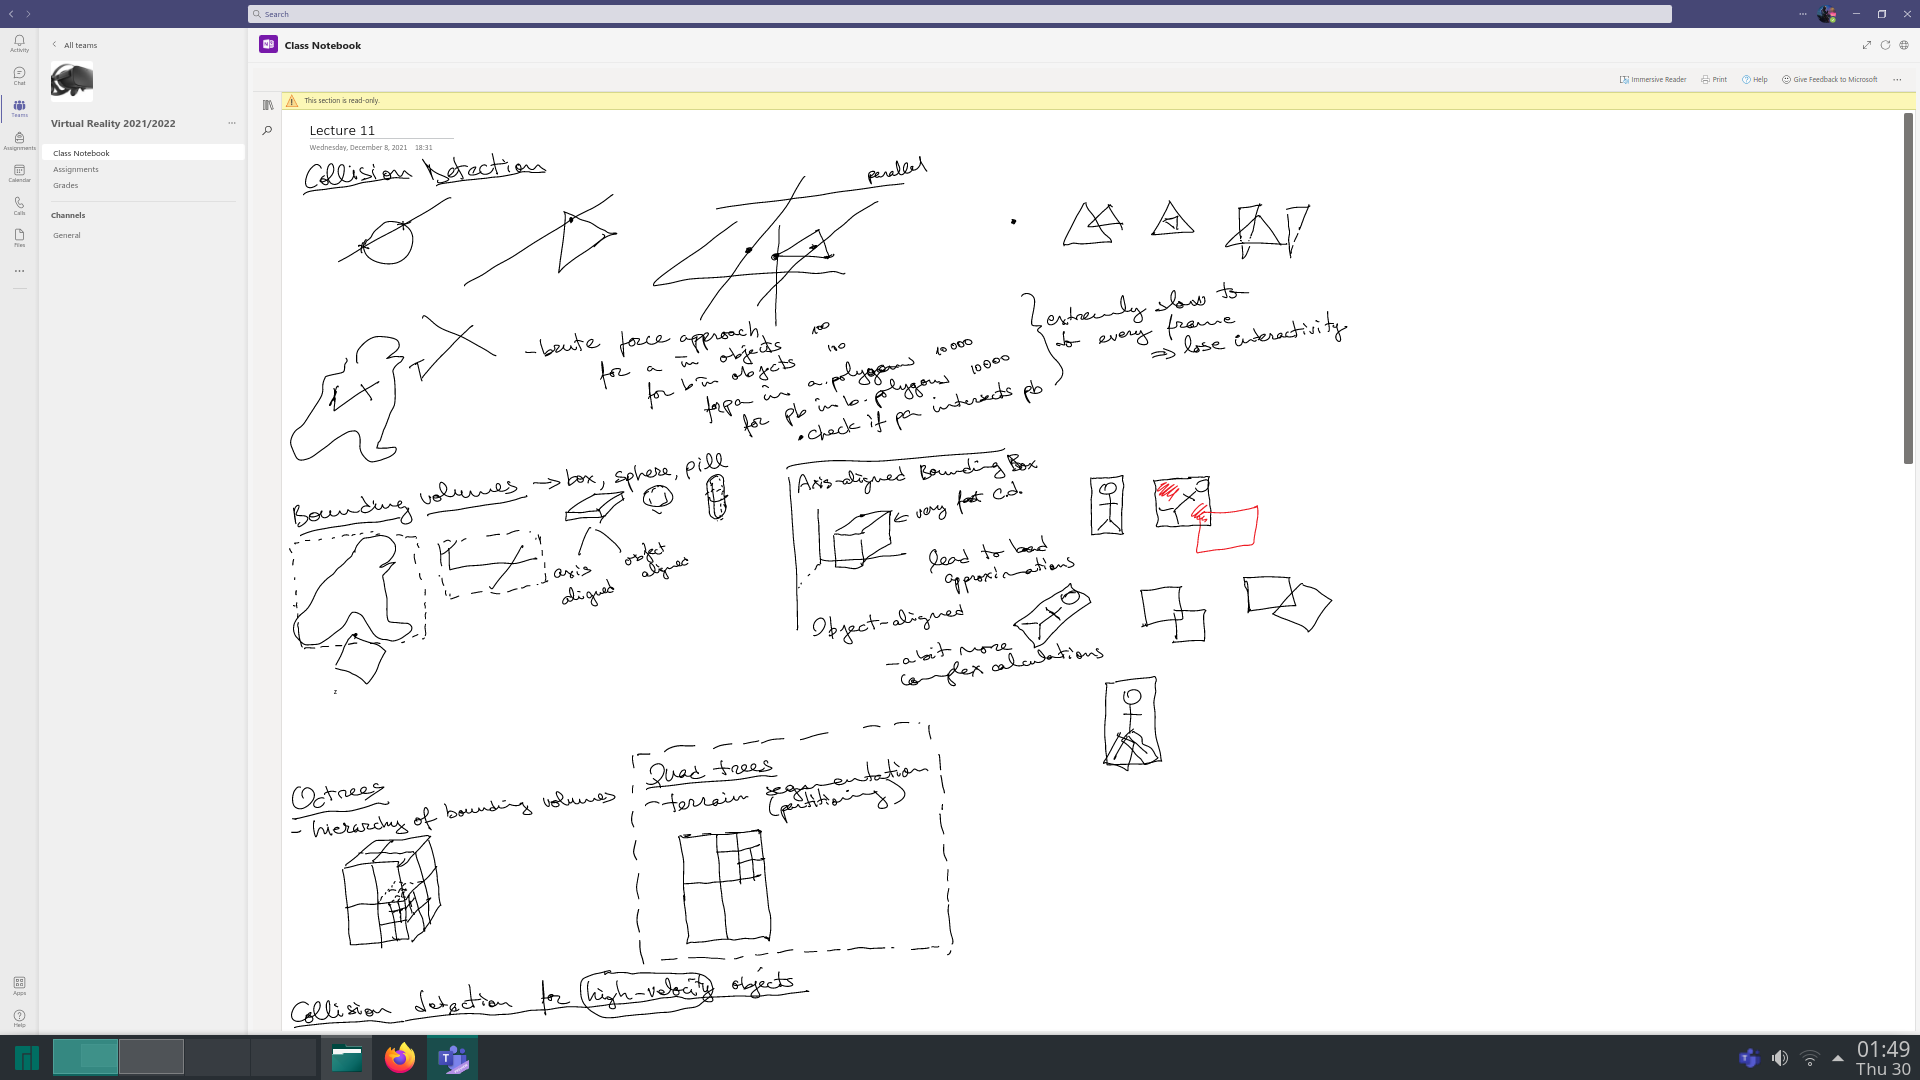 Search
Activity
Chat
Teams
Assignments
Calendar
Calls
Files
Apps
Help
All teams
Virtual Reality 2021/2022
Class Notebook
Assignments
Grades
Channels
General
Class Notebook
Immersive Reader
Print
Help
Give Feedback to Microsoft
This section is read-only.
Lecture 11
Wednesday, December 8, 2021 18:31
Collision Detection
parallel
- brute force approach
for a in objects 100
for b in objects 100
for pa in a.polygons 10000
for pb in b.polygons 10000
• check if pa intersects pb
extremely slow to
do every frame
⇒ lose interactivity
Bounding volumes → box, sphere, pill
axis
aligned
object
aligned
Axis-aligned Bounding Box
← very fast c.d.
lead to bad
approximations
Object-aligned
- a bit more
complex calculations
Octrees
- hierarchy of bounding volumes
Quad trees
- terrain segmentation
(partitioning)
Collision detection for high-velocity objects
01:49
Thu 30